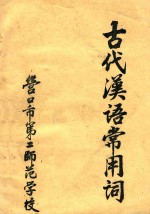 古代漢語常用词
營口市第二师范学校